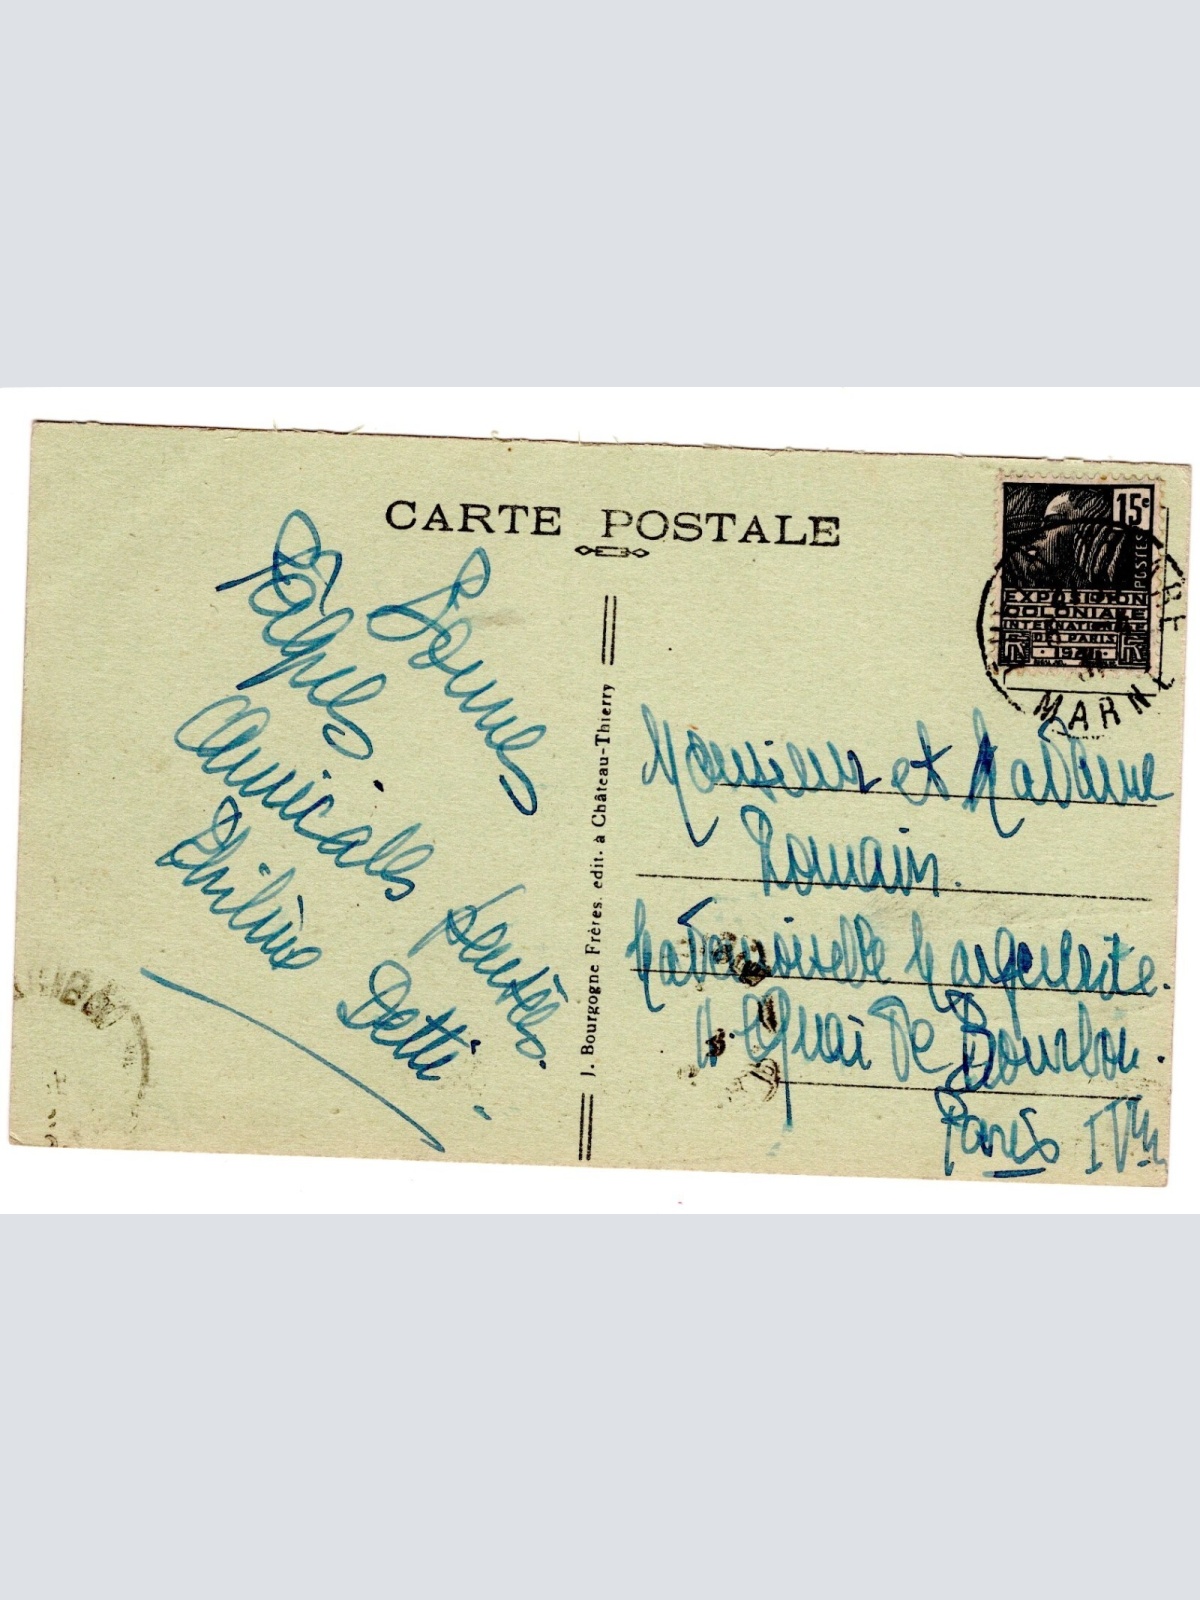 CARTE POSTALE
Bonnes
Pâques
Amicales pensées.
Philine Detti
J. Bourgogne Frères. edit. à Château-Thierry
15c
POSTES
EXPOSITION
COLONIALE
INTERNATIONALE
DE PARIS
1931
MARNE
Monsieur et Madame
Romain.
Mademoiselle Marguerite.
Quai de Bourbon.
Paris IVm